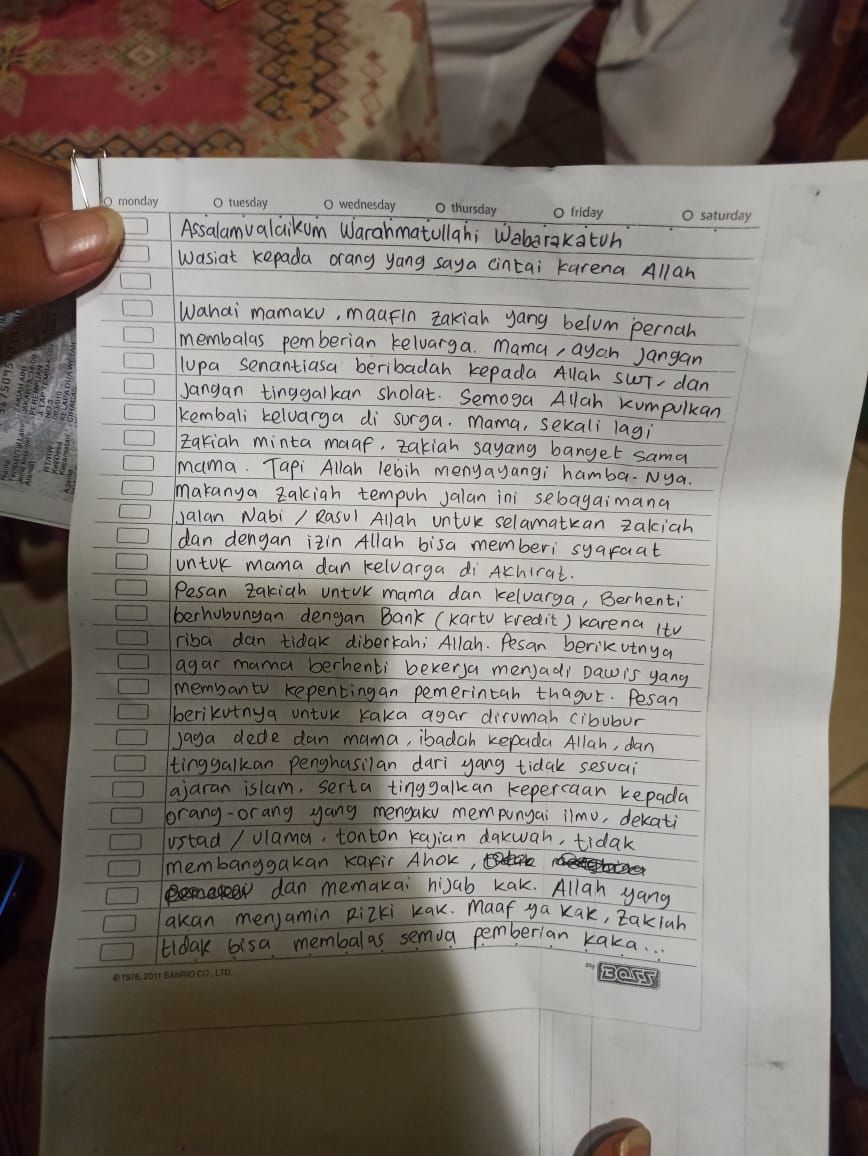 monday tuesday wednesday thursday friday saturday
Assalamualaikum Warahmatullahi Wabarakatuh
Wasiat kepada orang yang saya cintai karena Allah
Wahai mamaku, maafin zakiah yang belum pernah
membalas pemberian keluarga. Mama, ayah jangan
lupa senantiasa beribadah kepada Allah SWT, dan
jangan tinggalkan sholat. Semoga Allah kumpulkan
kembali keluarga di surga. Mama, sekali lagi
zakiah minta maaf, zakiah sayang banget sama
mama. Tapi Allah lebih menyayangi hamba-Nya.
makanya zakiah tempuh jalan ini sebagaimana
jalan Nabi / Rasul Allah untuk selamatkan zakiah
dan dengan izin Allah bisa memberi syafaat
untuk mama dan keluarga di Akhirat.
Pesan zakiah untuk mama dan keluarga, Berhenti
berhubungan dengan Bank (kartu kredit) karena itu
riba dan tidak diberkahi Allah. Pesan berikutnya
agar mama berhenti bekerja menjadi Dawis yang
membantu kepentingan pemerintah thagut. Pesan
berikutnya untuk kaka agar dirumah cibubur
jaga dede dan mama, ibadah kepada Allah, dan
tinggalkan penghasilan dari yang tidak sesuai
ajaran islam, serta tinggalkan kepercaan kepada
orang-orang yang mengaku mempunyai ilmu, dekati
ustad / ulama, tonton kajian dakwah, tidak
membanggakan kafir Ahok,
dan memakai hijab kak. Allah yang
akan menjamin Rizki kak. Maaf ya kak, zakiah
tidak bisa membalas semua pemberian kaka...
© 1976, 2011 SANRIO CO., LTD.